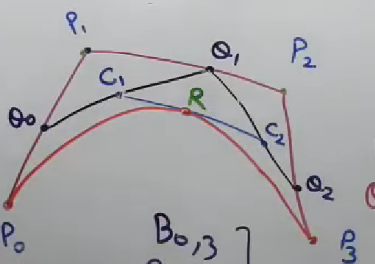 P₁
Q₁
P₂
C₁
R
Q₀
C₂
Q₂
P₀
B₀,₃ ]
P₃